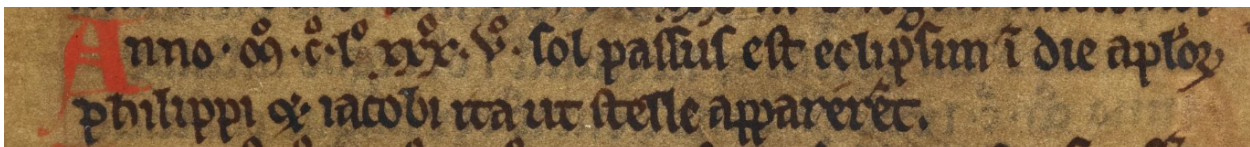 Anno · m̊ · c̊ · l° xxx̊ · v̊ · sol passus est eclip̱sim ī die apl̓oꝝ
philippi & iacobi ita ut stelle apparerēt.